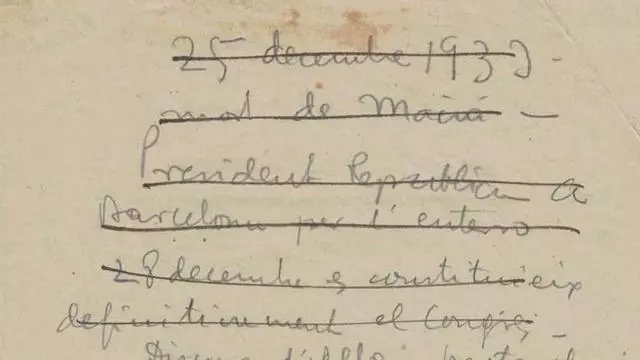 25 decembre 1933 -
mort de Macià -
President Republica a
Barcelona per l'enterro
28 decembre es constitueix
definitivament el Congrés